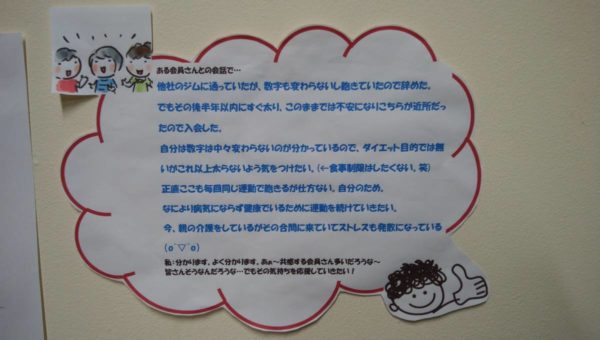 ある会員さんとの会話で…
他社のジムに通っていたが、数字も変わらないし飽きていたので辞めた。
でもその後半年以内にすぐ太り、このままでは不安になりこちらが近所だっ
たので入会した。
自分は数字は中々変わらないのが分かっているので、ダイエット目的では無
いがこれ以上太らないよう気をつけたい。(←食事制限はしたくない。笑)
正直ここも毎回同じ運動で飽きるが仕方ない。自分のため。
なにより病気にならず健康でいるために運動を続けていきたい。
今、親の介護をしているがその合間に来ていてストレスも発散になっている
(o´▽`o)
私:分かります。よく分かります。あぁ〜共感する会員さん多いだろうな〜
皆さんそうなんだろうな…でもその気持ちを応援していきたい!